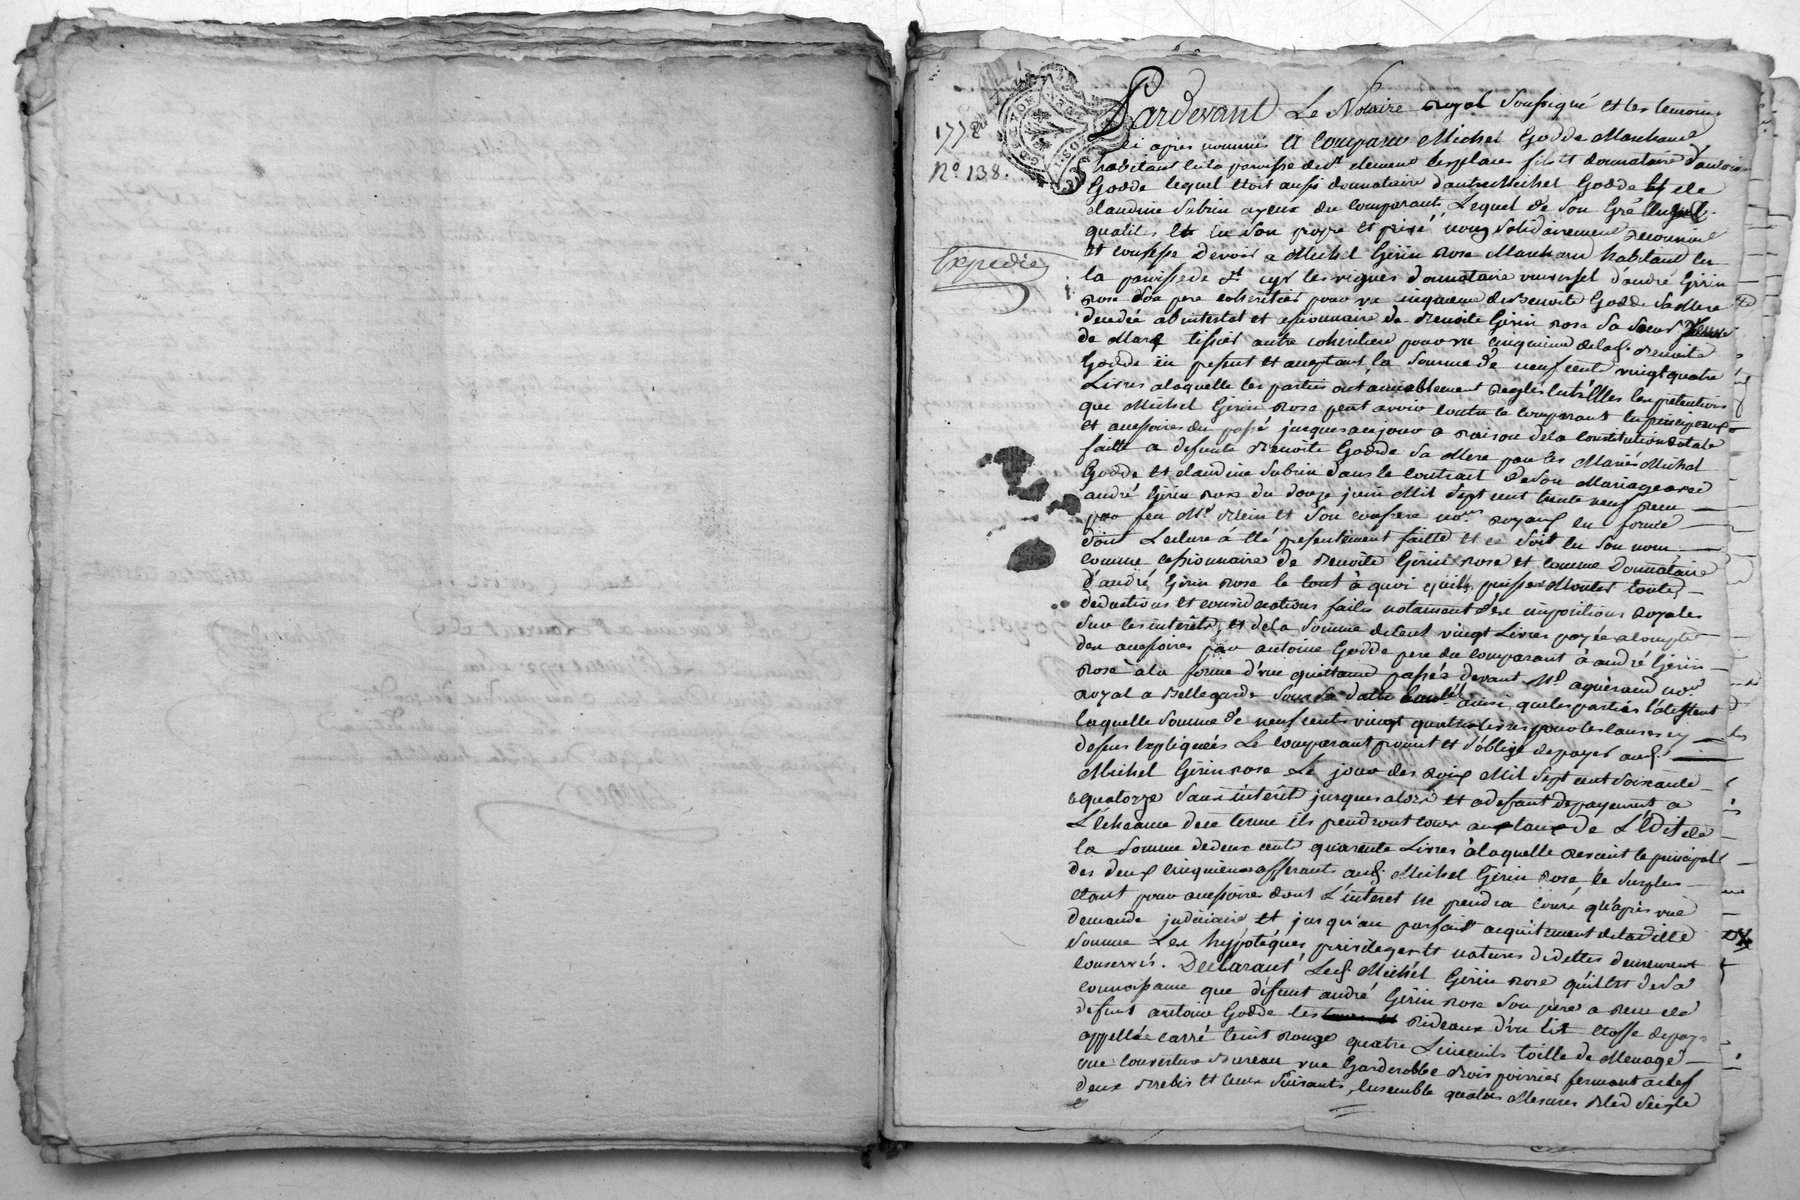 1772
N.º 138.
Expedié
Pardevant Le Notaire royal soussigné et les temoins
ci apres nommés A Comparu Michel Godde Marchand
habitant en la paroisse de st clement les places fils et donnataire d'antoine
Godde lequel etoit aussi donnataire d'autre Michel Godde et de
claudine Subrin ayeux du comparant Lequel de son gré
qualités et en son propre et privé nom solidairement reconnoit
et confesse devoir a Michel Girin Rose Marchand habitant en
la paroisse de st cyr les vignes donnataire universel d'andré Girin
Rose son pere coheritier pour un cinquieme de Benoite Godde sa Mere
decedée abintestat et cessionnaire de Benoite Girin Rose sa soeur femme
de Marc tissier autre coheritiere pour un cinquieme de lad. Benoite
Godde ici present et acceptant, la somme de neuf cent vingt quatre
Livres a laquelle les parties ont amiablement reglés entr'Elles les pretentions
que Michel Girin Rose peut avoir contre le comparant en principaux
et accessoires du passé jusques aujour a raison de la Constitution dotale
faitte a defunte Benoite Godde sa Mere par les Mariés Michel
Godde et claudine Subrin dans le contrat de son Mariage avec
andré Girin Rose du douze juin Mil sept cent trente neuf receu
par feu Me. et son confrere nores. royaux en forme
dont Lecture a été presentement faitte et ce soit en son nom
comme cessionnaire de Benoite Girin Rose et comme Donnataire
d'andré Girin Rose le tout à quoi qu'ils puisse Monter toutes
deductions et considerations faites notament des impositions royales
sur les interêts, et de la somme de cent vingt Livres payée a compte
des accessoires par antoine Godde pere du comparant à andré Girin
Rose à la forme d'une quittance passée devant Me. nore.
royal a Bellegarde sous sa datte ainsi que les parties l'attestent
laquelle somme de neuf cent vingt quatre livres pour les causes cy
dessus expliquées Le comparant promet et s'oblige de payer aud.
Michel Girin Rose Le jour des Rois Mil sept cent soixante
quatorze sans interêt jusques alors et a defaut de payement a
L'echeance de ce terme ils prendront cours au taux de L'Edit de
la somme de deux cent quarente Livres à laquelle revient le principal
des deux cinquiemes afferants aud. Michel Girin Rose le surplus
etant pour accessoires dont L'interet ne prendra cours qu'après une
demande judiciaire et jusqu'au parfait acquitement de ladite
somme Les hypoteques privileges et natures de dettes demeurent
conservés. Declarant Led. Michel Girin Rose qu'il est de sa
connoissance que défunt andré Girin Rose son père a receu de
defunt antoine Godde les Rideaux d'un lit etoffe de pays
appellée carré teint Rouge quatre Linceuils toille de Menage
une couverture Bureau une Garderobbe Bois poirrier fermant a clef
deux Brebis et leurs suivants, Ensemble quatre Mesures Bled Seigle